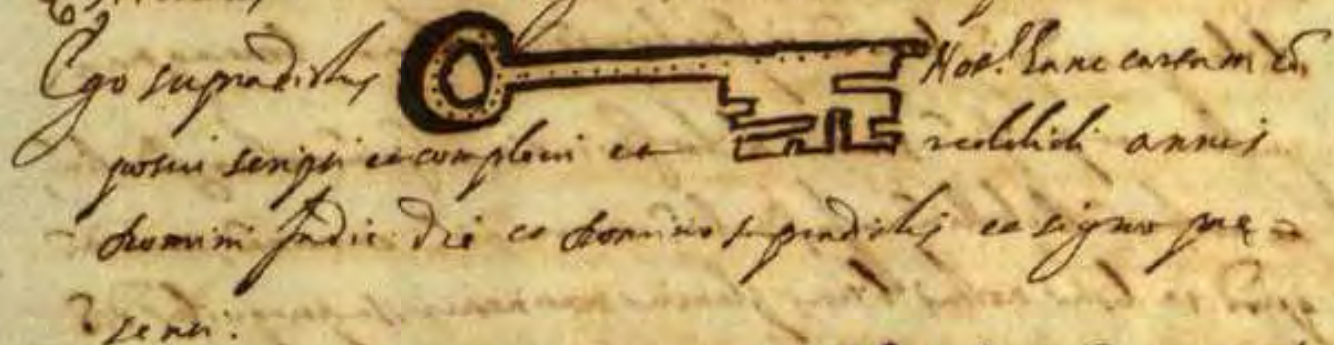 Ego supradictus Not.s hanc cartam cō
posui scripsi et complevi et reddidi annis
Domini Indic. Die et Domino supradictis et signo præ-
senti.